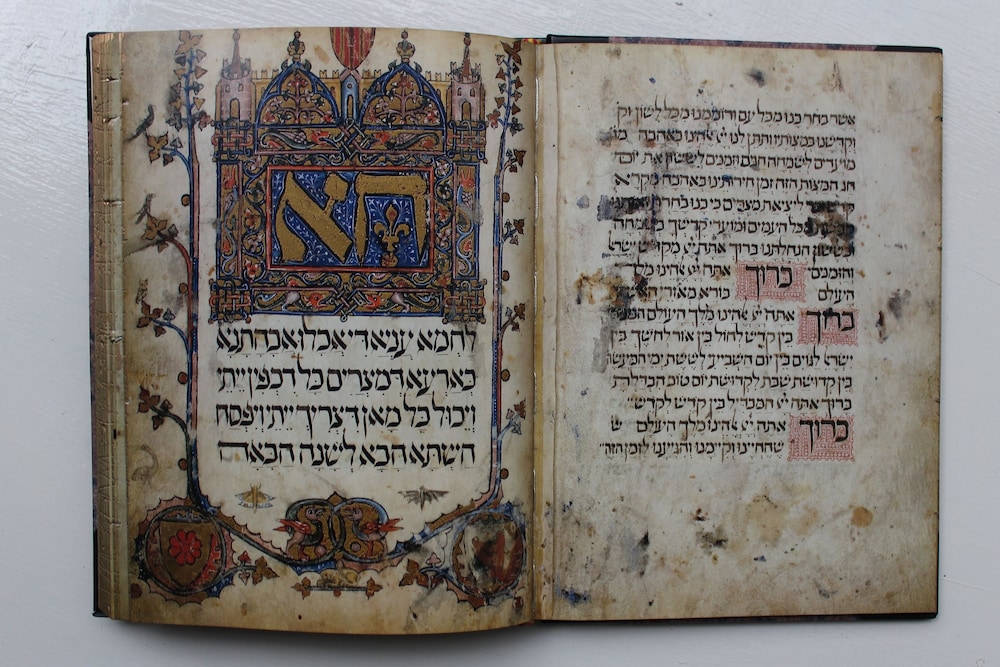 אשר בחר בנו מכל עם ורוממנו מכל לשון וק
וקדשנו במצותיו ותתן לנו יי אלהינו באהבה מו
מועדים לשמחה חגים וזמנים לששון את יום
חג המצות הזה זמן חירותינו באהבה מקרא
ליציאת מצרים כי בנו בחרת
מכל העמים ומועדי קדשך בשמחה
ובששון הנחלתנו ברוך אתה יי מקדש ישר
והזמנים ברוך אתה יי אלהינו מלך
העולם בורא מאורי
ברוך אתה יי אלהינו מלך העולם המב
בין קדש לחול בין אור לחשך בין
ישראל לגוים בין יום השביעי לששת ימי המעשה
בין קדושת שבת לקדושת יום טוב הבדלת
ברוך אתה יי המבדיל בין קדש לקדש
ברוך אתה יי אלהינו מלך העולם ש
שהחיינו וקיימנו והגיענו לזמן הזה
הא
לחמא עניא די אכלו אבהתנא
בארעא דמצרים כל דכפין ייתי
ויכול כל מאן דצריך ייתי ויפסח
השתא הכא לשנה הבאה